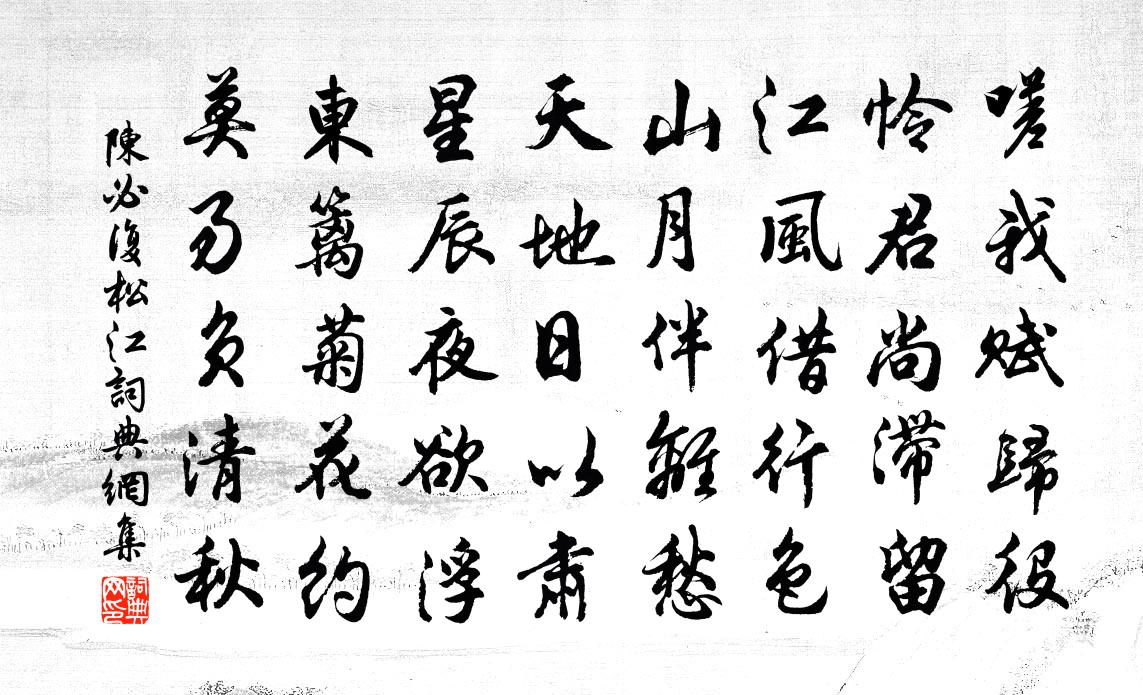 嗟我賦歸役
憐君尚滯留
江風借行色
山月伴離愁
天地日以肅
星辰夜欲浮
東籬菊花約
莫易負清秋
陳必復松江詞典網集
詞典網印